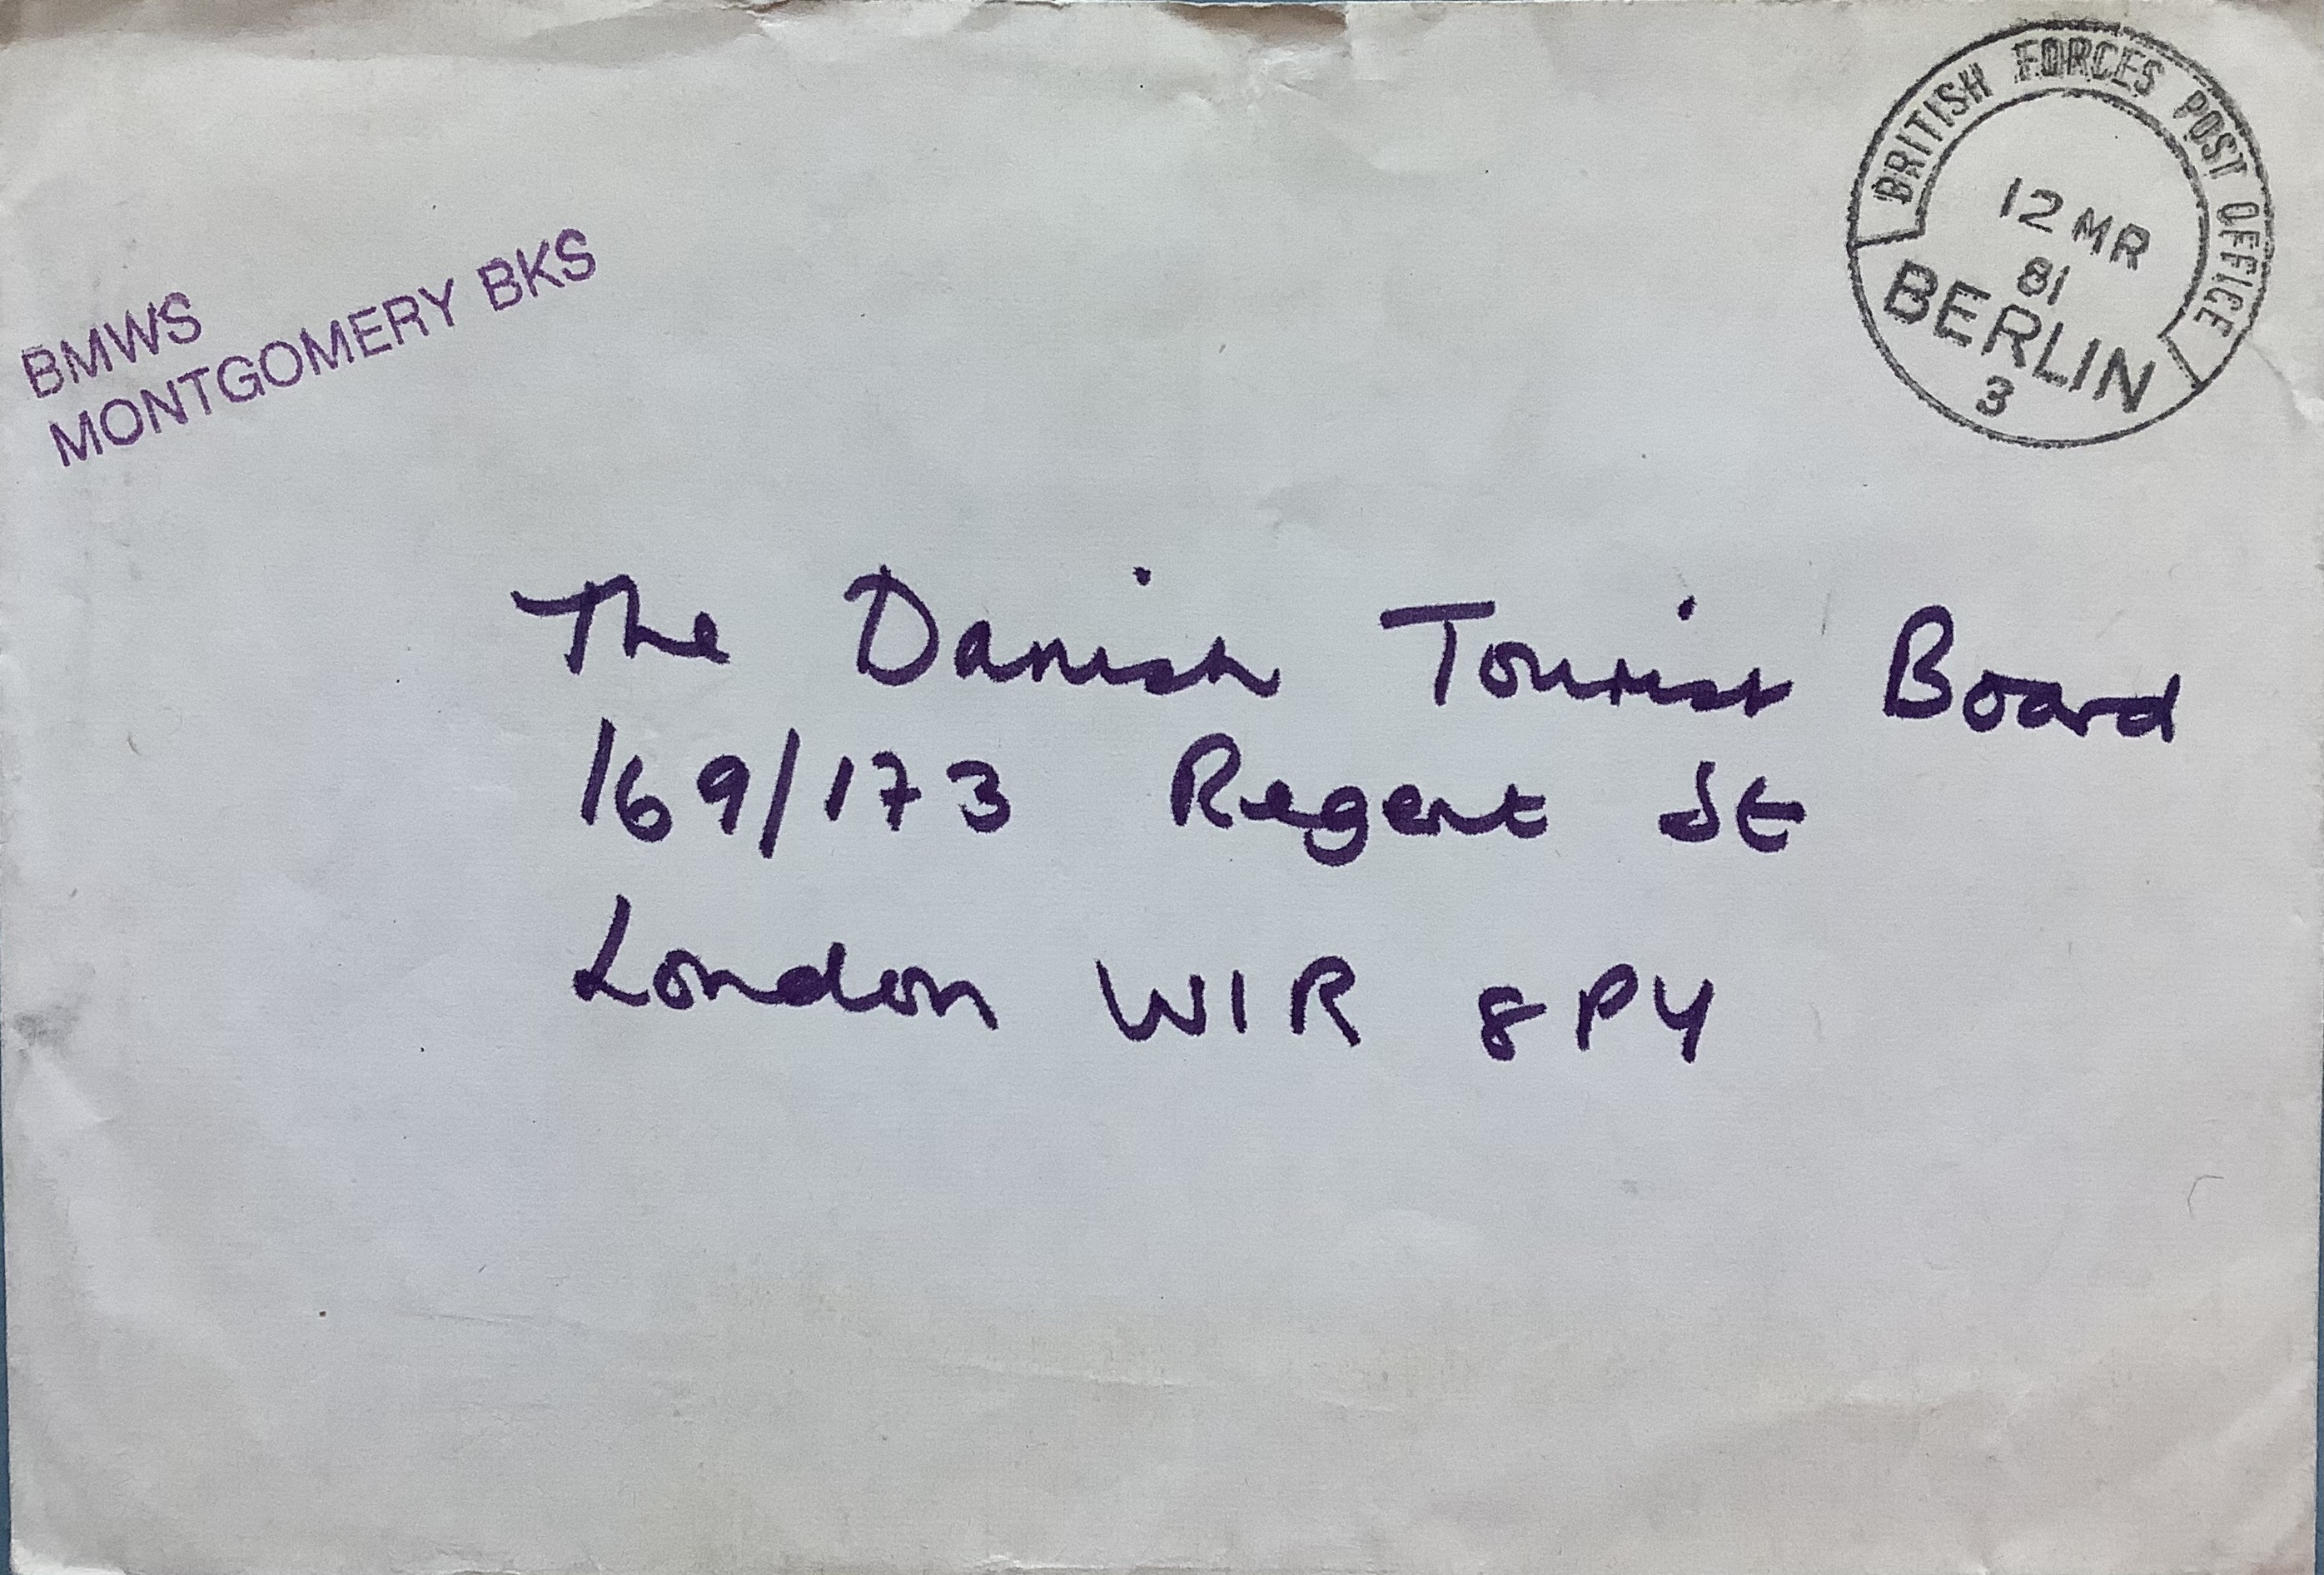 BMWS
MONTGOMERY BKS
BRITISH FORCES POST OFFICE
12 MR
81
BERLIN
3
The Danish Tourist Board
169/173 Regent St
London W1R 8PY